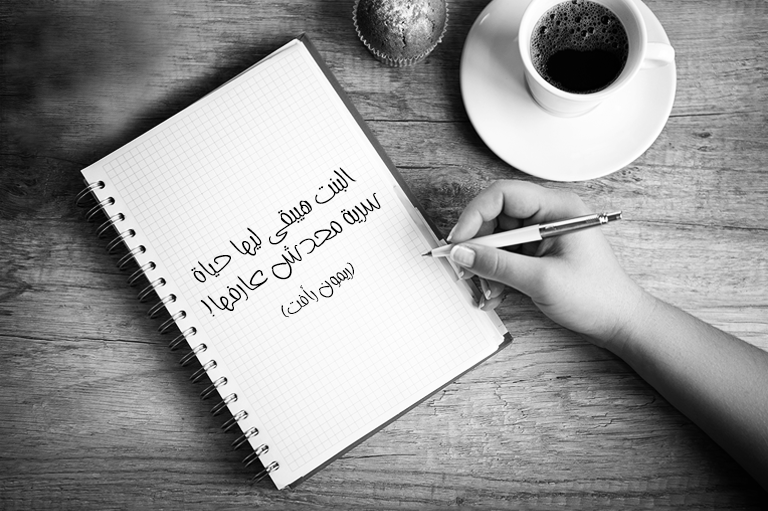 البنت هيبقى ليها حياة
سرية محدش عارفها!
(ريمون رأفت)